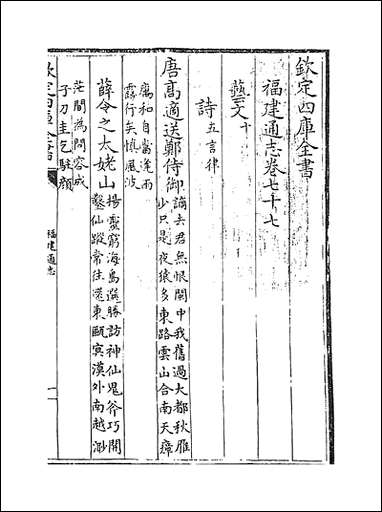 欽定四庫全書
福建通志卷七十七
藝文十
詩五言律
唐高適送鄭侍御謫去君無恨閩中我舊過大都秋雁
少只是夜猿多東路雲山合南天瘴
癘和自當逢雨
露行矣慎風波
薛令之太姥山揚靈窮海島選勝訪神仙鬼斧巧開
鑿仙蹤常往還東甌溟漠外南越渺
茫間為問容成
子刀圭乞駐顔
欽定四庫全書
福建通志
一